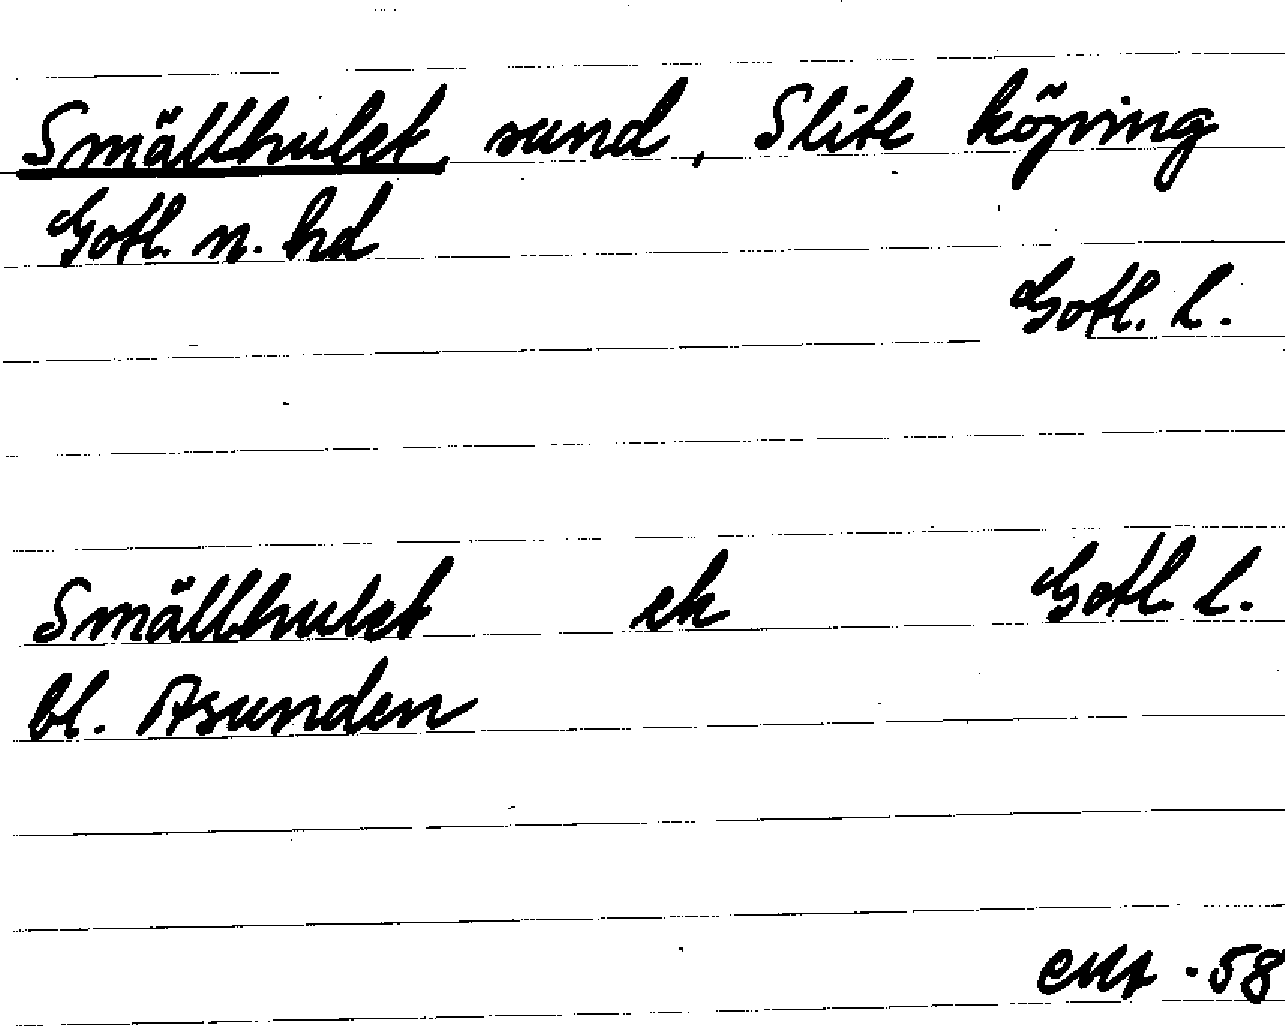 Smällhulet, sund, Slite köping
Gotl. n. hd
Gotl. l.
Smällhulet ek Gotl. l.
bl. Asunden
-58